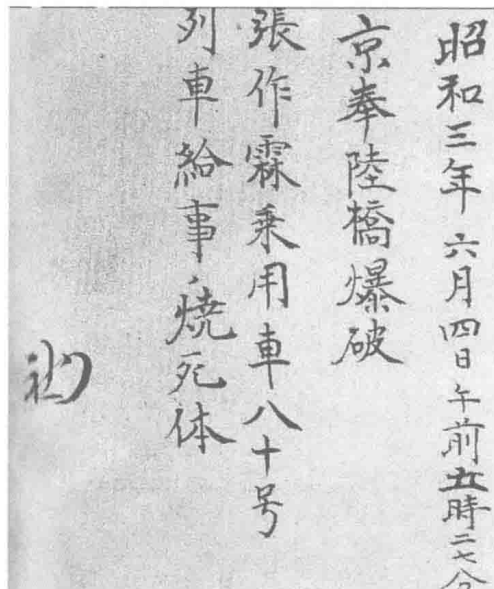 昭和三年六月四日午前五時二七分
京奉陸橋爆破
張作霖乗用車八十号
列車給事ノ焼死体